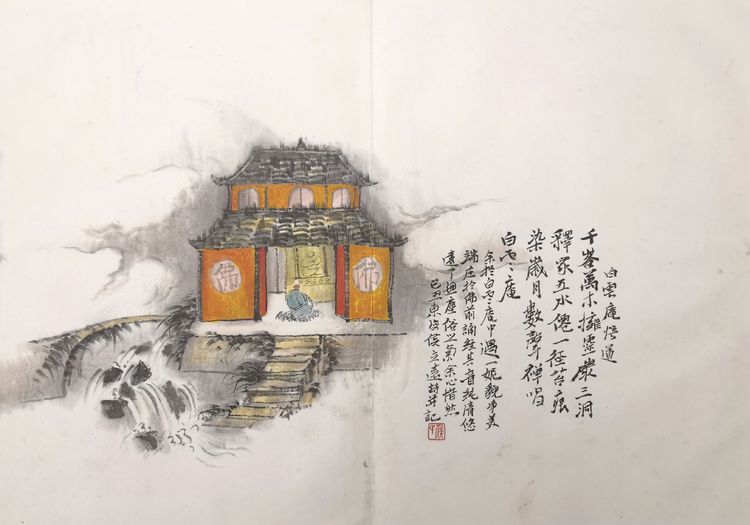 白雲庵悟道
千峯萬木擁靈巖三洞
釋家五水僊一徑苔痕
染歲月數聲禪唱
白雲庵
余於白雲庵中遇一妮貌净美
端庄於佛前誦經其音純清悠
遠了無塵俗之氣余心惜然
己丑侯立遠詩并記
佛
佛